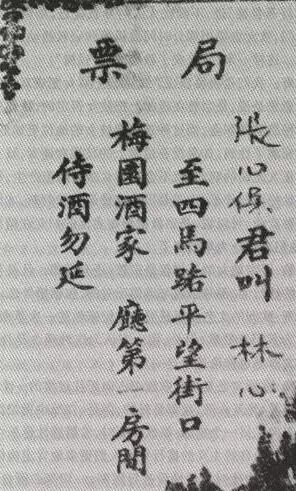 局票
張心侯君叫林心
至四馬路平望街口
梅園酒家 廳第一房間
侍酒勿延